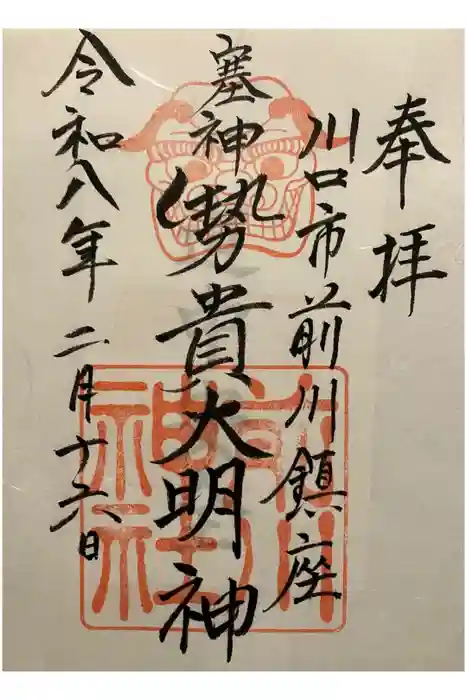 奉拝
川口市前川鎮座
塞神勢貴大明神
令和八年二月十六日
前川
神社